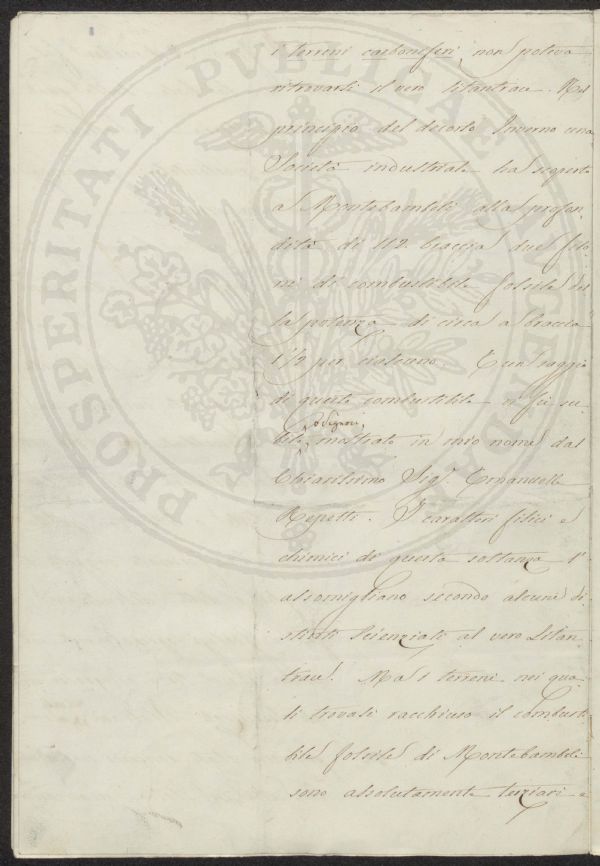 i terreni carboniferi, non poteva
ritrovarsi il vero litantrace. Nel
principio del decorso Inverno una
Società industriale ha scoperto
a Montebamboli alla profon-
dità di 112 braccia due filo-
ni di combustibile fossile del
la potenza di circa a braccia
1 1/2 per ciascuno. E un saggio
di questo combustibile vi fù su-
o Signori,
bito mostrato in mio nome dal
Chiarissimo Sigr. Emanuelle
Repetti. I caratteri fisici e
chimici di questa sostanza l'
assomigliano secondo alcuni di
stinti Scienziati al vero Litan-
trace. Ma i terreni nei qua-
li trovasi racchiuso il combusti-
bile fossile di Montebamboli
sono assolutamente terziari e
PROSPERITATI PUBLICAE AUGENDAE